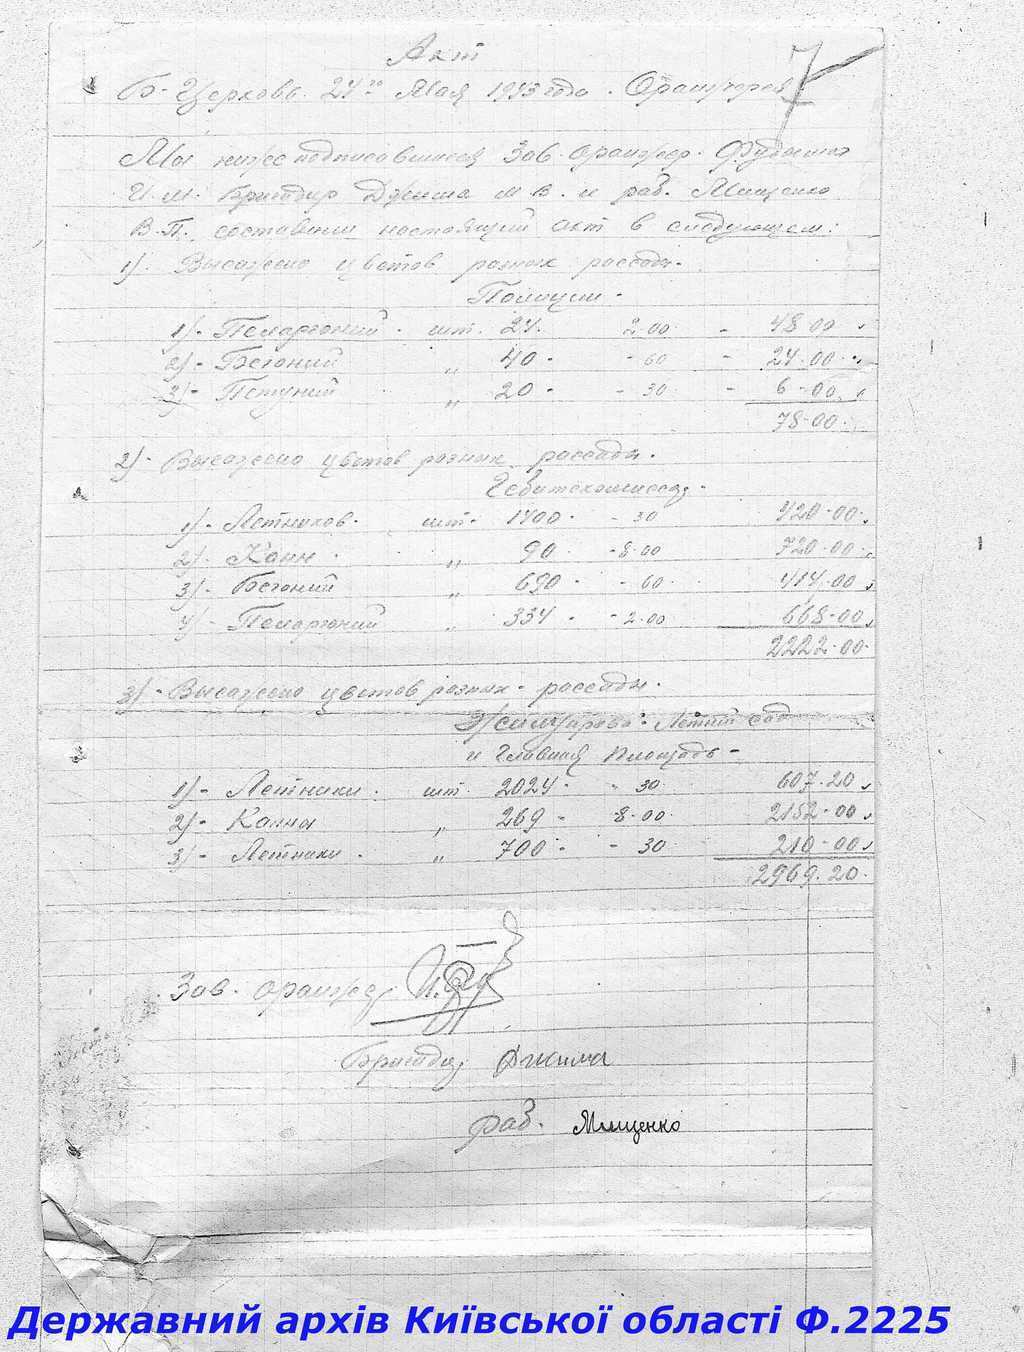 Акт
7
Б-Церковь. 24го Мая 1943 года. Оранжерея
Мы ниже подписавшиеся Зав. оранжер.
И.М. Бригадир Джима М В. и раб. Мищенко
В.П. составили настоящий акт в следующем:
1). Высажено цветов разных рассады.
Полиции.
1)- Пеларгоний - шт. 24. 2.00 - 48 00 „
2)- Бегоний „ 40 - - 60 - 24.00 „
3)- Петуний „ 20 - - 30 - 6 -00 „
78-00.
2)- Высажено цветов разных рассады.
Гебитскомиссар.
1)- Летников - шт. 1400 - - 30 420-00 „
2)- Канн - „ 90 - - 8-00 720-00 „
3)- Бегоний „ 690 - - 60 - 414-00 „
4)- Пеларгоний „ 334 - - 2-00 668-00 „
2222-00-
3)- Высажено цветов разных - рассады.
Летний сад
и Главная Площадь -
1)- Летники - шт. 2024 - - 30 607.20 „
2)- Канны „ 269 - - 8-00 2152-00 „
3)- Летники - „ 700 - - 30 210-00 „
2969.20-
Зав. оранжер.
Бригадир Джима
раб. Мищенко
Державний архів Київської області Ф.2225